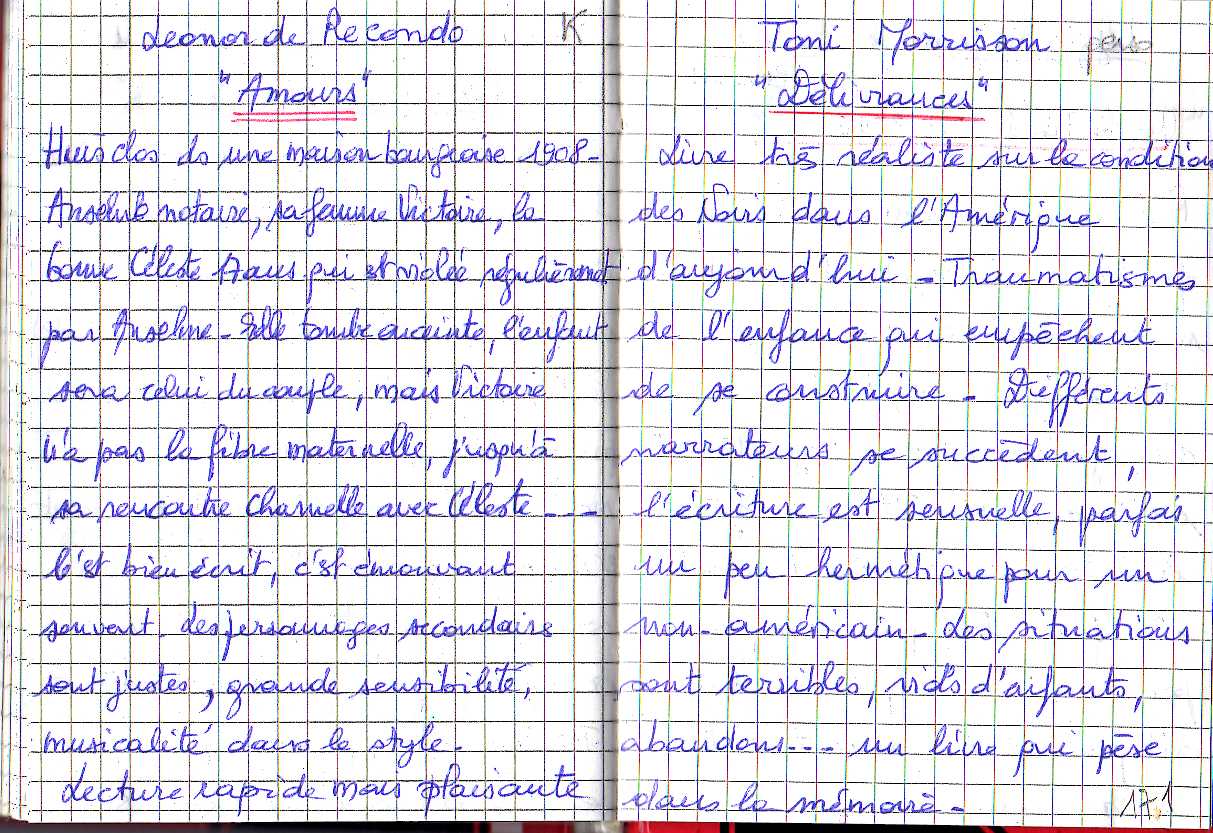 Leonor de Recondo K
"Amours"
Huis clos ds une maison bourgeoise 1908-
Anselme notaire, sa femme Victoire, la
bonne Céleste 17ans qui est violée régulièrement
par Anselme - Elle tombe enceinte, l'enfant
sera celui du couple, mais Victoire
n'a pas la fibre maternelle, jusqu'à
sa rencontre charnelle avec Céleste ---
C'est bien écrit, c'est émouvant
souvent. Les personnages secondaires
sont justes, grande sensibilité,
musicalité dans le style.
Lecture rapide mais plaisante
Toni Morrisson perso
"Délivrances"
Livre très réaliste sur la condition
des Noirs dans l'Amérique
d'aujourd'hui - Traumatismes
de l'enfance qui empêchent
de se construire - Différents
narrateurs se succèdent,
l'écriture est sensuelle, parfois
un peu hermétique pour un
non-américain - Les situations
sont terribles, viols d'enfants,
abandons --- un livre qui pèse
dans la mémoire -
171